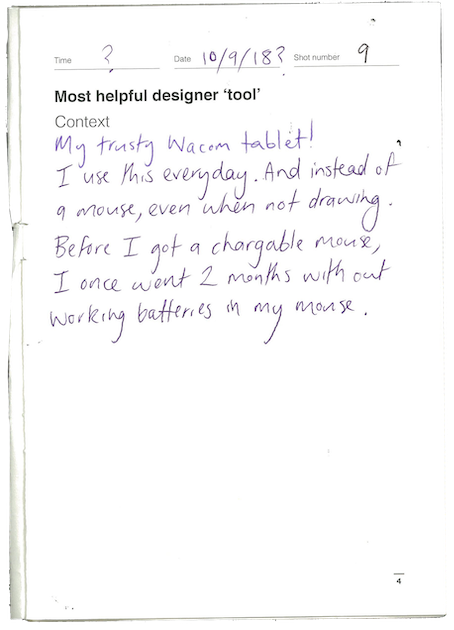 Time ? Date 10/9/18? Shot number 9
Most helpful designer 'tool'
Context
My trusty Wacom tablet!
I use this everyday. And instead of
a mouse, even when not drawing.
Before I got a chargable mouse,
I once went 2 months with out
working batteries in my mouse.
4